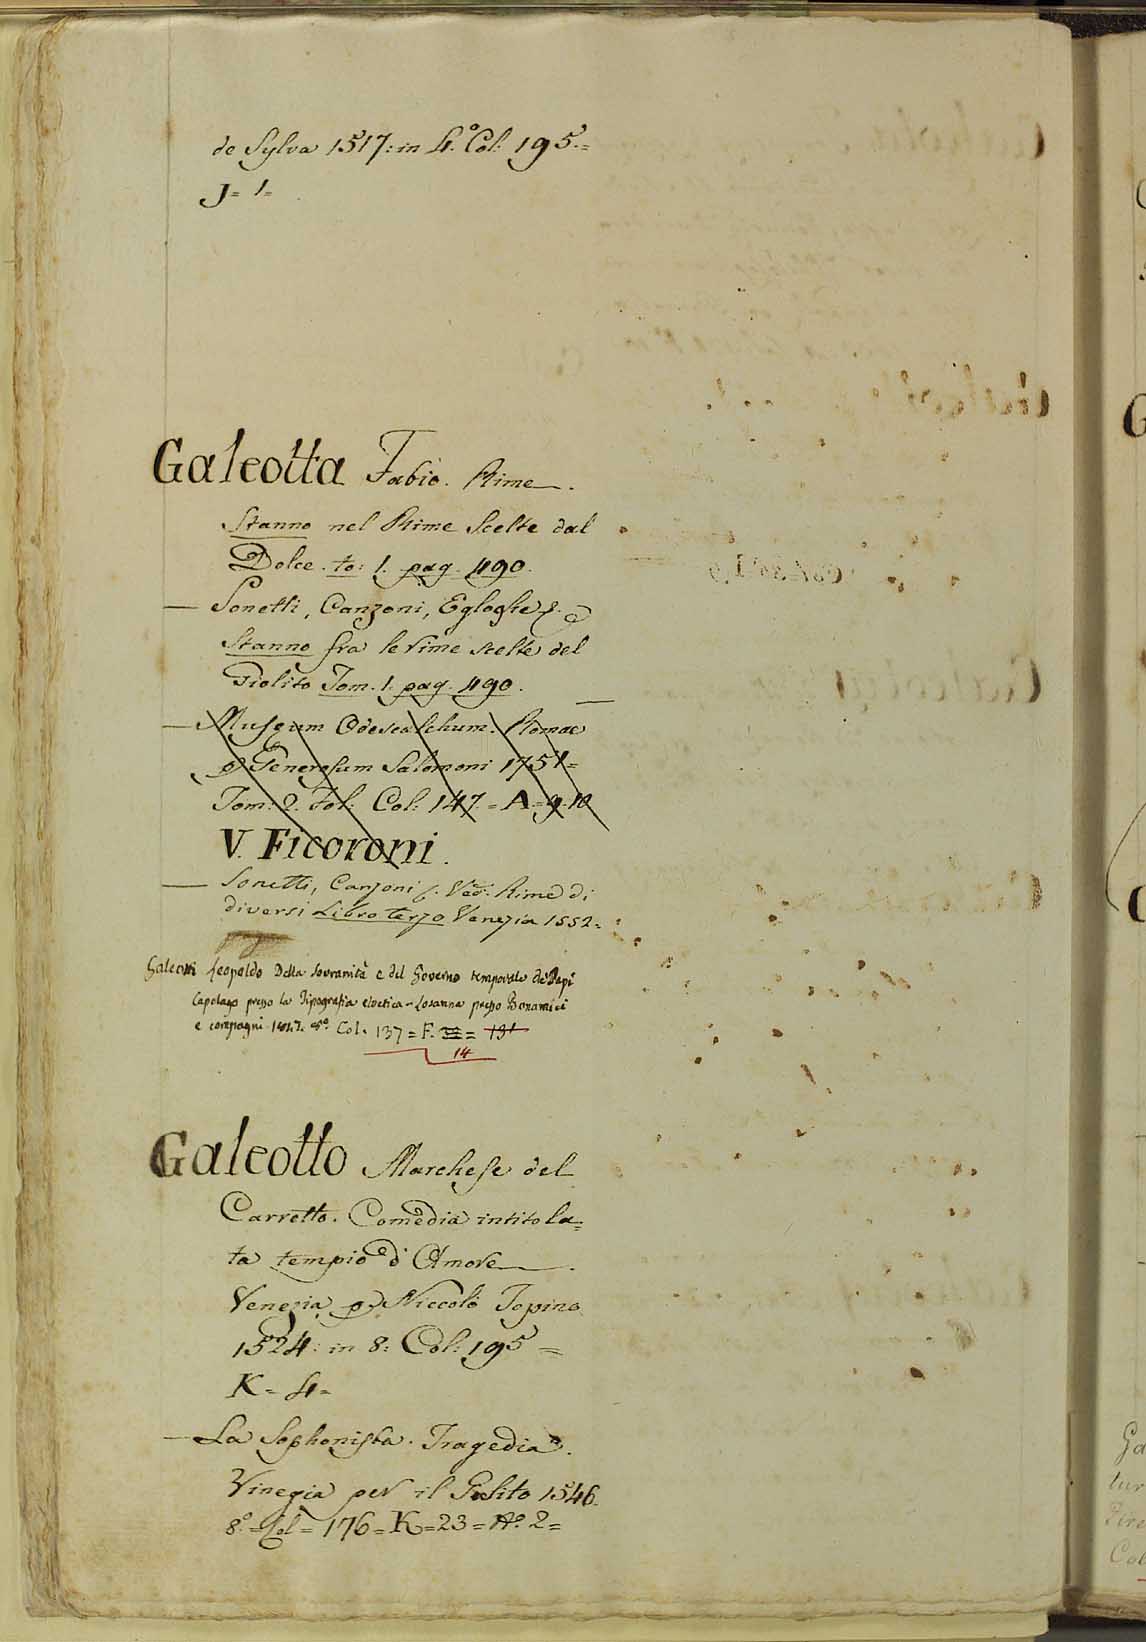 de Sylva 1517: in 4.º Col: 195.=
J= 1=
Galeotta Fabio. Rime.
Stanno nel Rime Scelte dal
Dolce. to: 1. pag. 490.
— Sonetti, Canzoni, Egloghe &.
Stanno fra le rime scelte del
Giolito Tom. 1. pag. 490.
— Museum Odescalchum. Romae
p Generosum Salomoni 1751=
Tom: 2. Fol: Col: 147.= A= 9.10
V. Ficoroni.
— Sonetti, Canzoni &. Ved: Rime di
diversi Libro terzo Venezia 1552=
Galeotti Leopoldo Della Sovranità e del Governo temporale de' Papi
Capolago presso la Tipografia elvetica - Losanna presso Bonamici
e compagni 1847. 8º. Col. 137= F. = 131
14
Galeotto Marchese del
Carretto. Comedia intitola=
ta tempio d'Amore.
Venezia p Niccolò Zopino
1524: in 8: Col: 195 =
K= 4=
— La Sophonisba. Tragedia.
Vinegia per il Golito 1546.
8.º= Col= 176= K=23= Aº. 2=